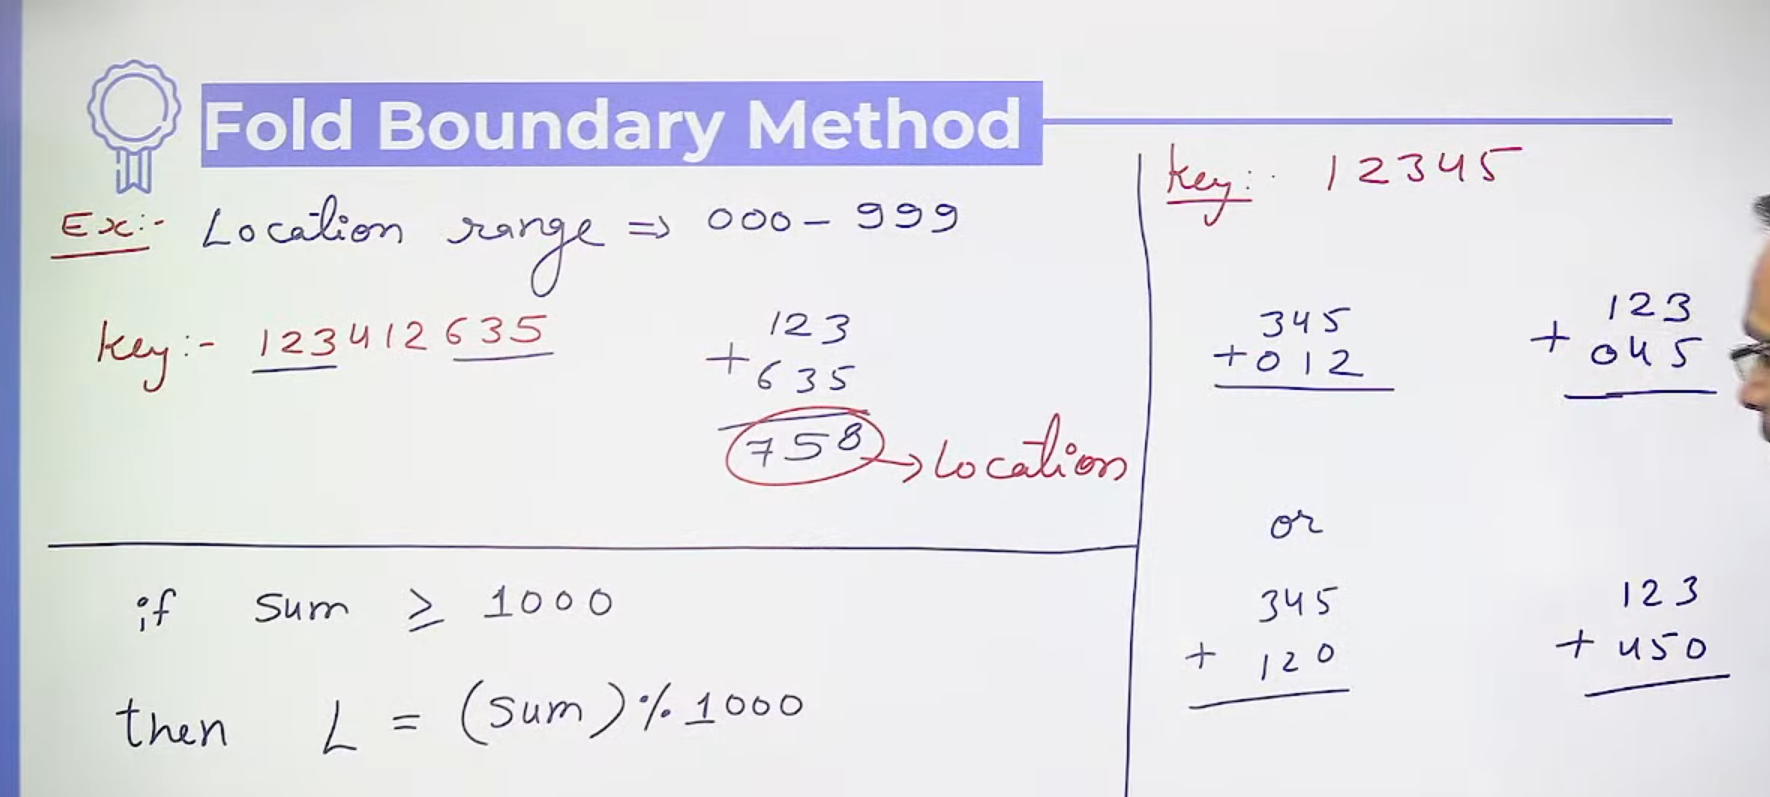 Fold Boundary Method
Ex:- Location range => 000 - 999
key:- 123412635
123
+ 635
758 → Location
if Sum ≥ 1000
then L = (Sum) % 1000
key:- 12345
345
+ 012
123
+ 045
or
345
+ 120
123
+ 450